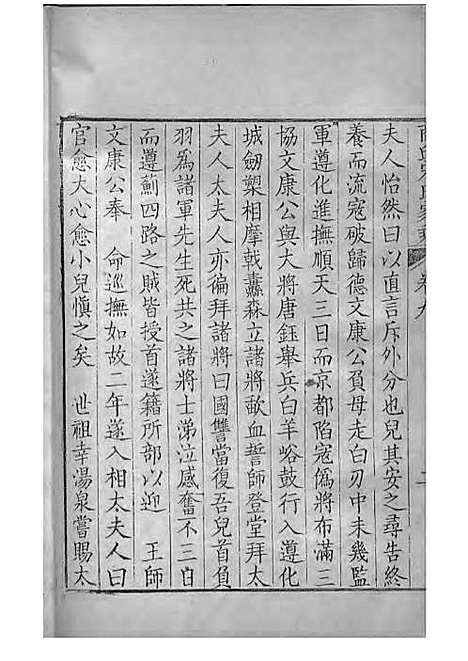 夫人怡然曰以直言斥外分也兒其安之尋告終
養而流寇破歸德文康公負母走白刃中未幾監
軍遵化進撫順天三日而京都陷寇偽將布滿三
協文康公與大將唐鈺舉兵白羊峪鼓行入遵化
城劒槊相摩戟纛森立諸將歃血誓師登堂拜太
夫人太夫人亦徧拜諸將曰國讐當復吾兒首負
羽爲諸軍先生死共之諸將士涕泣感奮不三日
而遵薊四路之賊皆授首遂籍所部以迎 王師
文康公奉 命巡撫如故二年遂入相太夫人曰
官愈大心愈小兒愼之矣 世祖幸湯泉嘗賜太